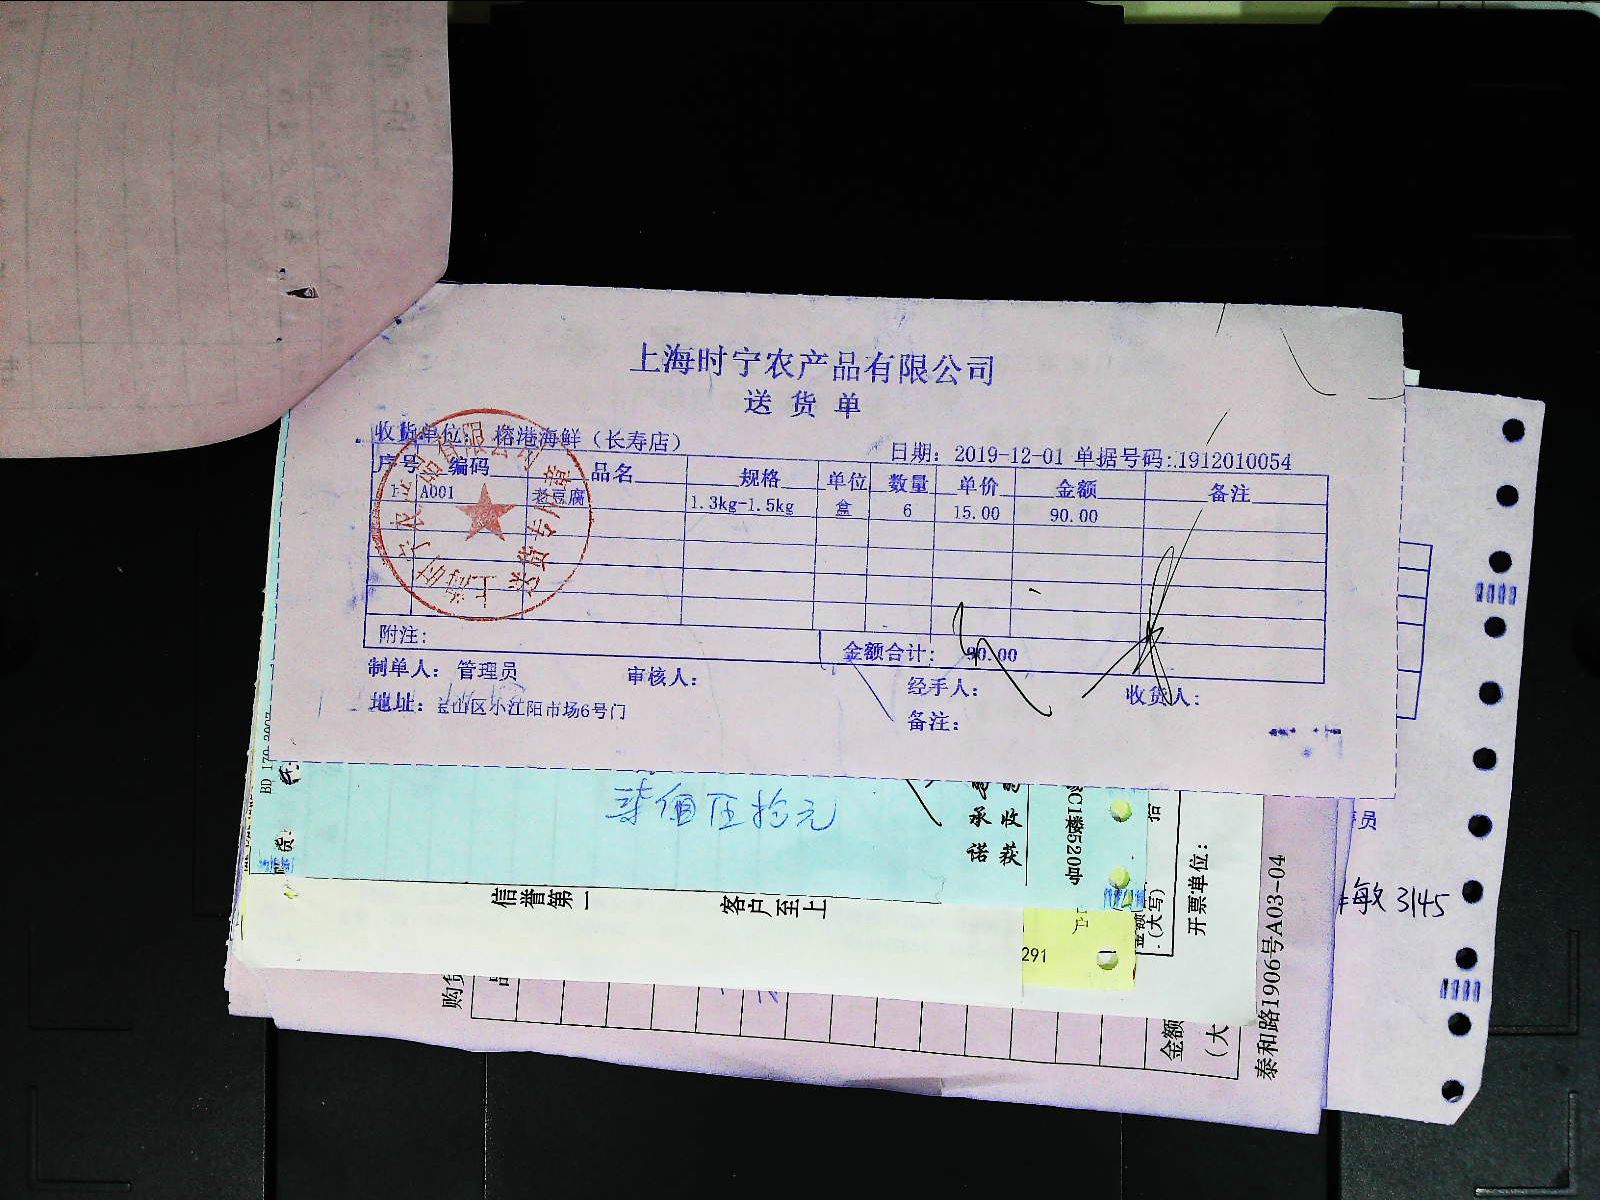 上海时宁农产品有限公司
送货单
收货单位: 榕港海鲜（长寿店）
日期: 2019-12-01 单据号码:.1912010054
序号 编码 品名 规格 单位 数量 单价 金额 备注
1 A001 老豆腐 1.3kg-1.5kg 盒 6 15.00 90.00
附注:
金额合计: 90.00
制单人: 管理员 审核人: 经手人: 收货人:
地址: 宝山区小江阳市场6号门
备注:
柒佰伍拾元
承诺
信誉第一
客户至上
291
(大写)
开票单位:
泰和路1906号A03-04
敏 3145
员
金额
(大